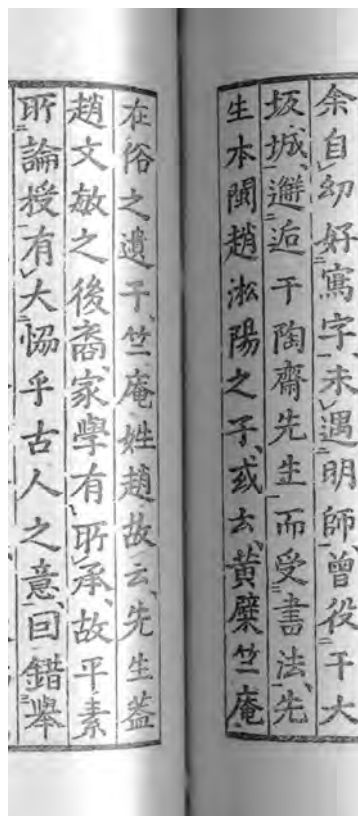 余自幼好寫字、未遇明師、曾役于大
坂城、邂逅于陶齋先生、而受書法、先
生本閩趙淞陽之子、或云、黃檗竺庵
在俗之遺子、竺庵姓趙故云、先生蓋
趙文敏之後裔、家學有所承、故平素
所論授有大恊乎古人之意、因錯舉